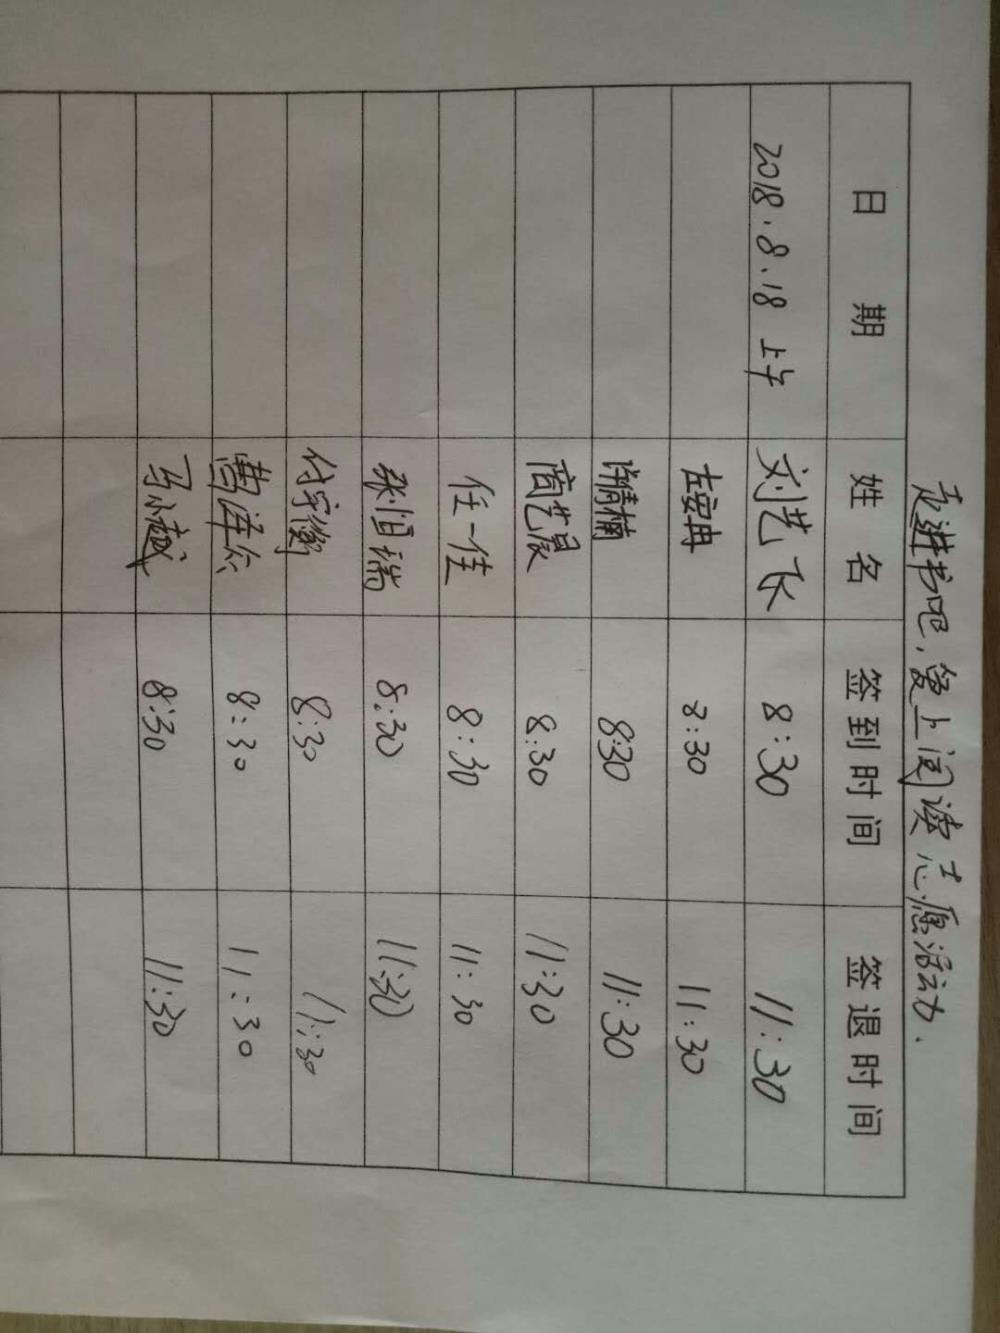 走进书吧,爱上阅读志愿活动.
日期 姓名 签到时间 签退时间
2018.8.18 上午 刘艺飞 8:30 11:30
左安冉 8:30 11:30
许精楠 8:30 11:30
商艺晨 8:30 11:30
任一佳 8:30 11:30
张恒瑞 8:30 11:30
付宇衡 8:30 11:30
8:30 11:30
马小越 8:30 11:30